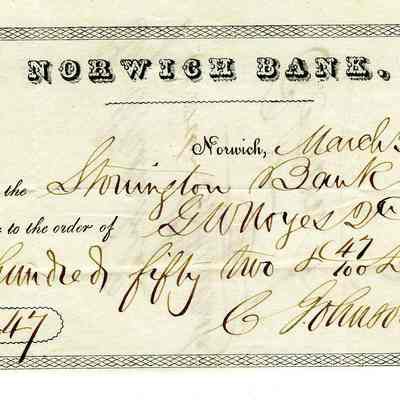 NORWICH BANK.
Norwich, March
the Stonington Bank
to the order of G W Noyes
hundred fifty two & 47/100
47 C Johnson